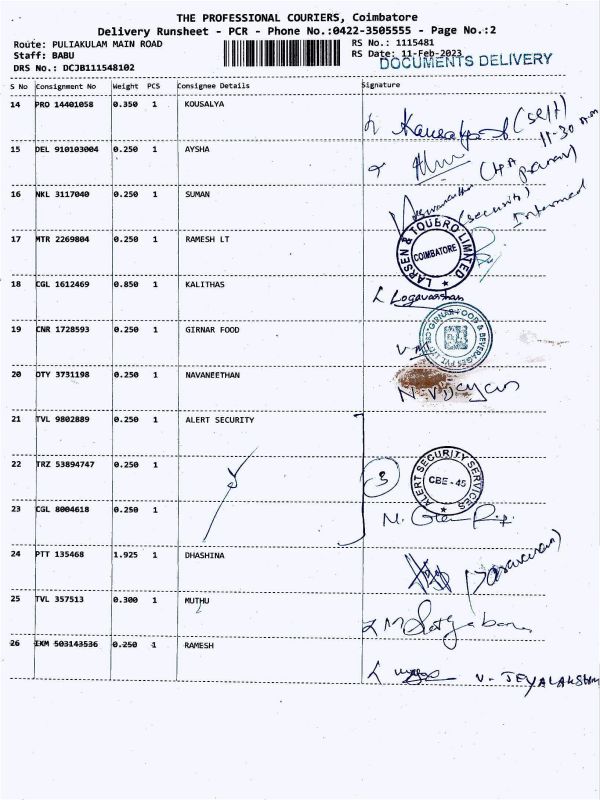 THE PROFESSIONAL COURIERS, Coimbatore
Delivery Runsheet - PCR - Phone No.:0422-3505555 - Page No.:2
Route: PULIAKULAM MAIN ROAD
RS No.: 1115481
Staff: BABU
RS Date: 11-Feb-2023
DOCUMENTS DELIVERY
DRS No.: DCJB111548102
S No Consignment No Weight PCS Consignee Details Signature
14 PRO 14401058 0.350 1 KOUSALYA
(Self)
11-30 A.M
15 DEL 910103004 0.250 1 AYSHA
16 NKL 3117040 0.250 1 SUMAN
(security)
Informed
17 MTR 2269804 0.250 1 RAMESH LT
LARSEN & TOUBRO LIMITED
COIMBATORE
18 CGL 1612469 0.850 1 KALITHAS
Logavarshan
19 CNR 1728593 0.250 1 GIRNAR FOOD
GIRNAR FOOD & BEVERAGES PVT. LTD.
20 DTY 3731198 0.250 1 NAVANEETHAN
N. Vijayan
21 TVL 9802889 0.250 1 ALERT SECURITY
22 TRZ 53894747 0.250 1
3
ALERT SECURITY SERVICES
CBE - 45
23 CGL 8004618 0.250 1
24 PTT 135468 1.925 1 DHASHINA
25 TVL 357513 0.300 1 MUTHU
26 IKM 503143536 0.250 1 RAMESH
V. JEYALAKSHMI